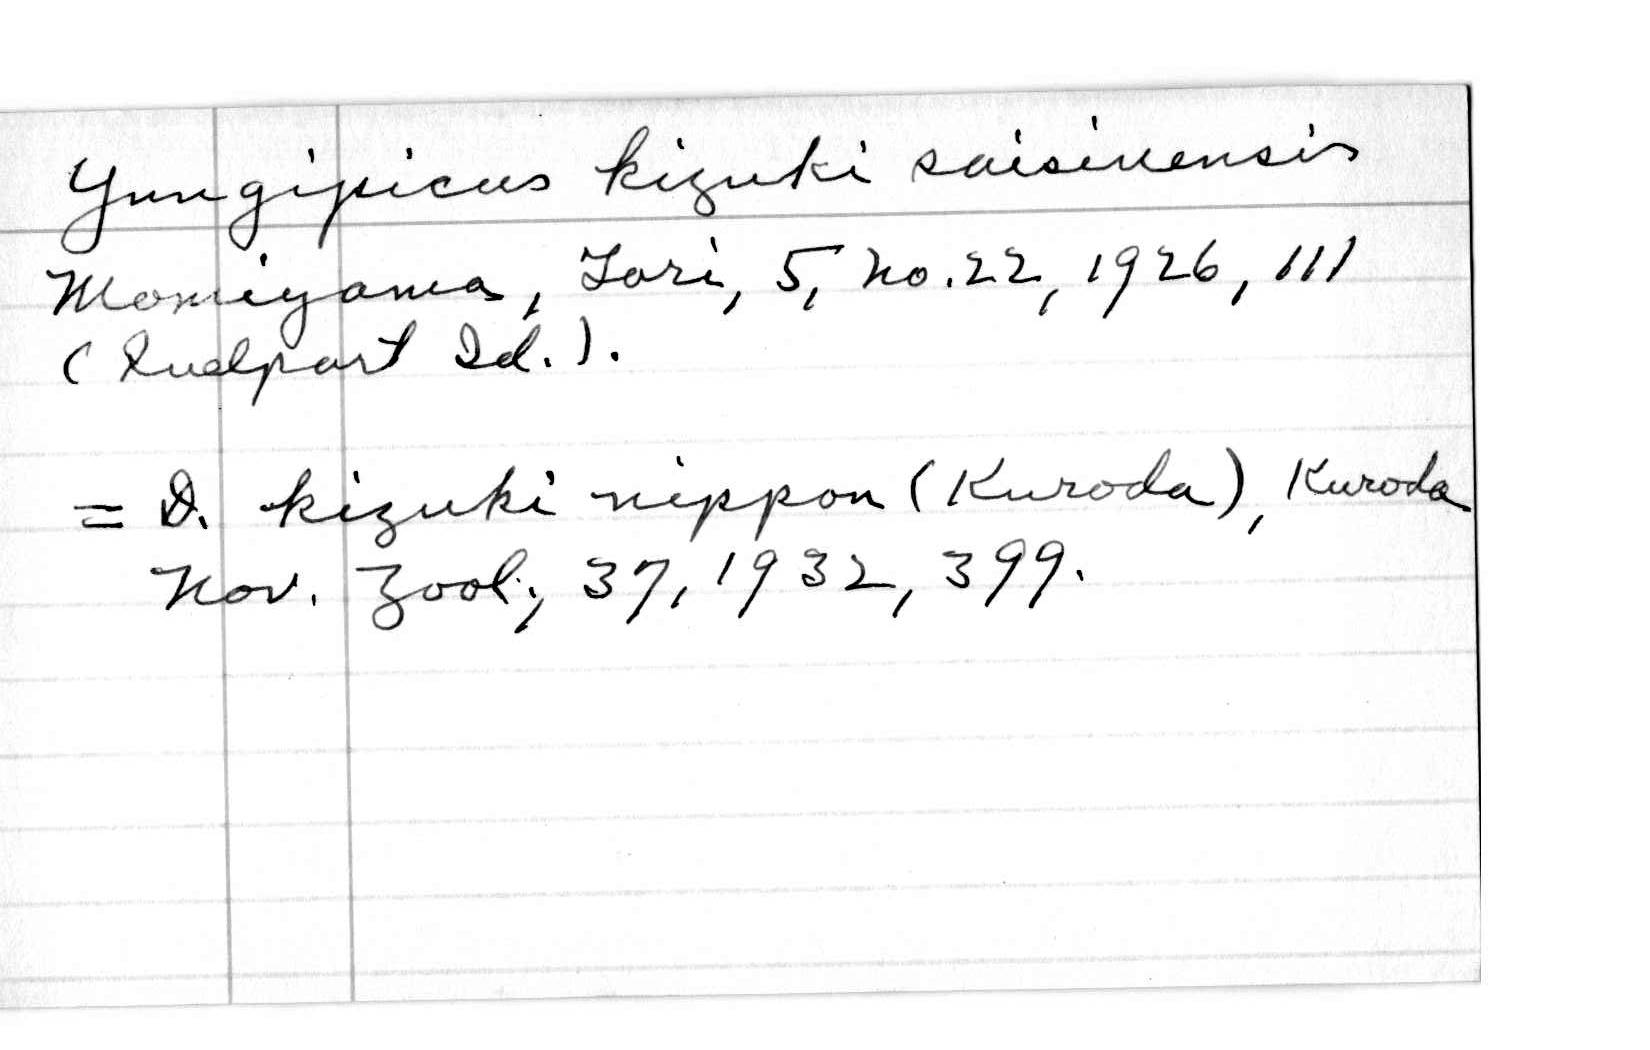 Yungipicus kizuki saisiuensis
Momiyama, Tori, 5, no. 22, 1926, 111
(Quelpart Id.).
= D. kizuki nippon (Kuroda), Kuroda
Nov. Zool., 37, 1932, 399.